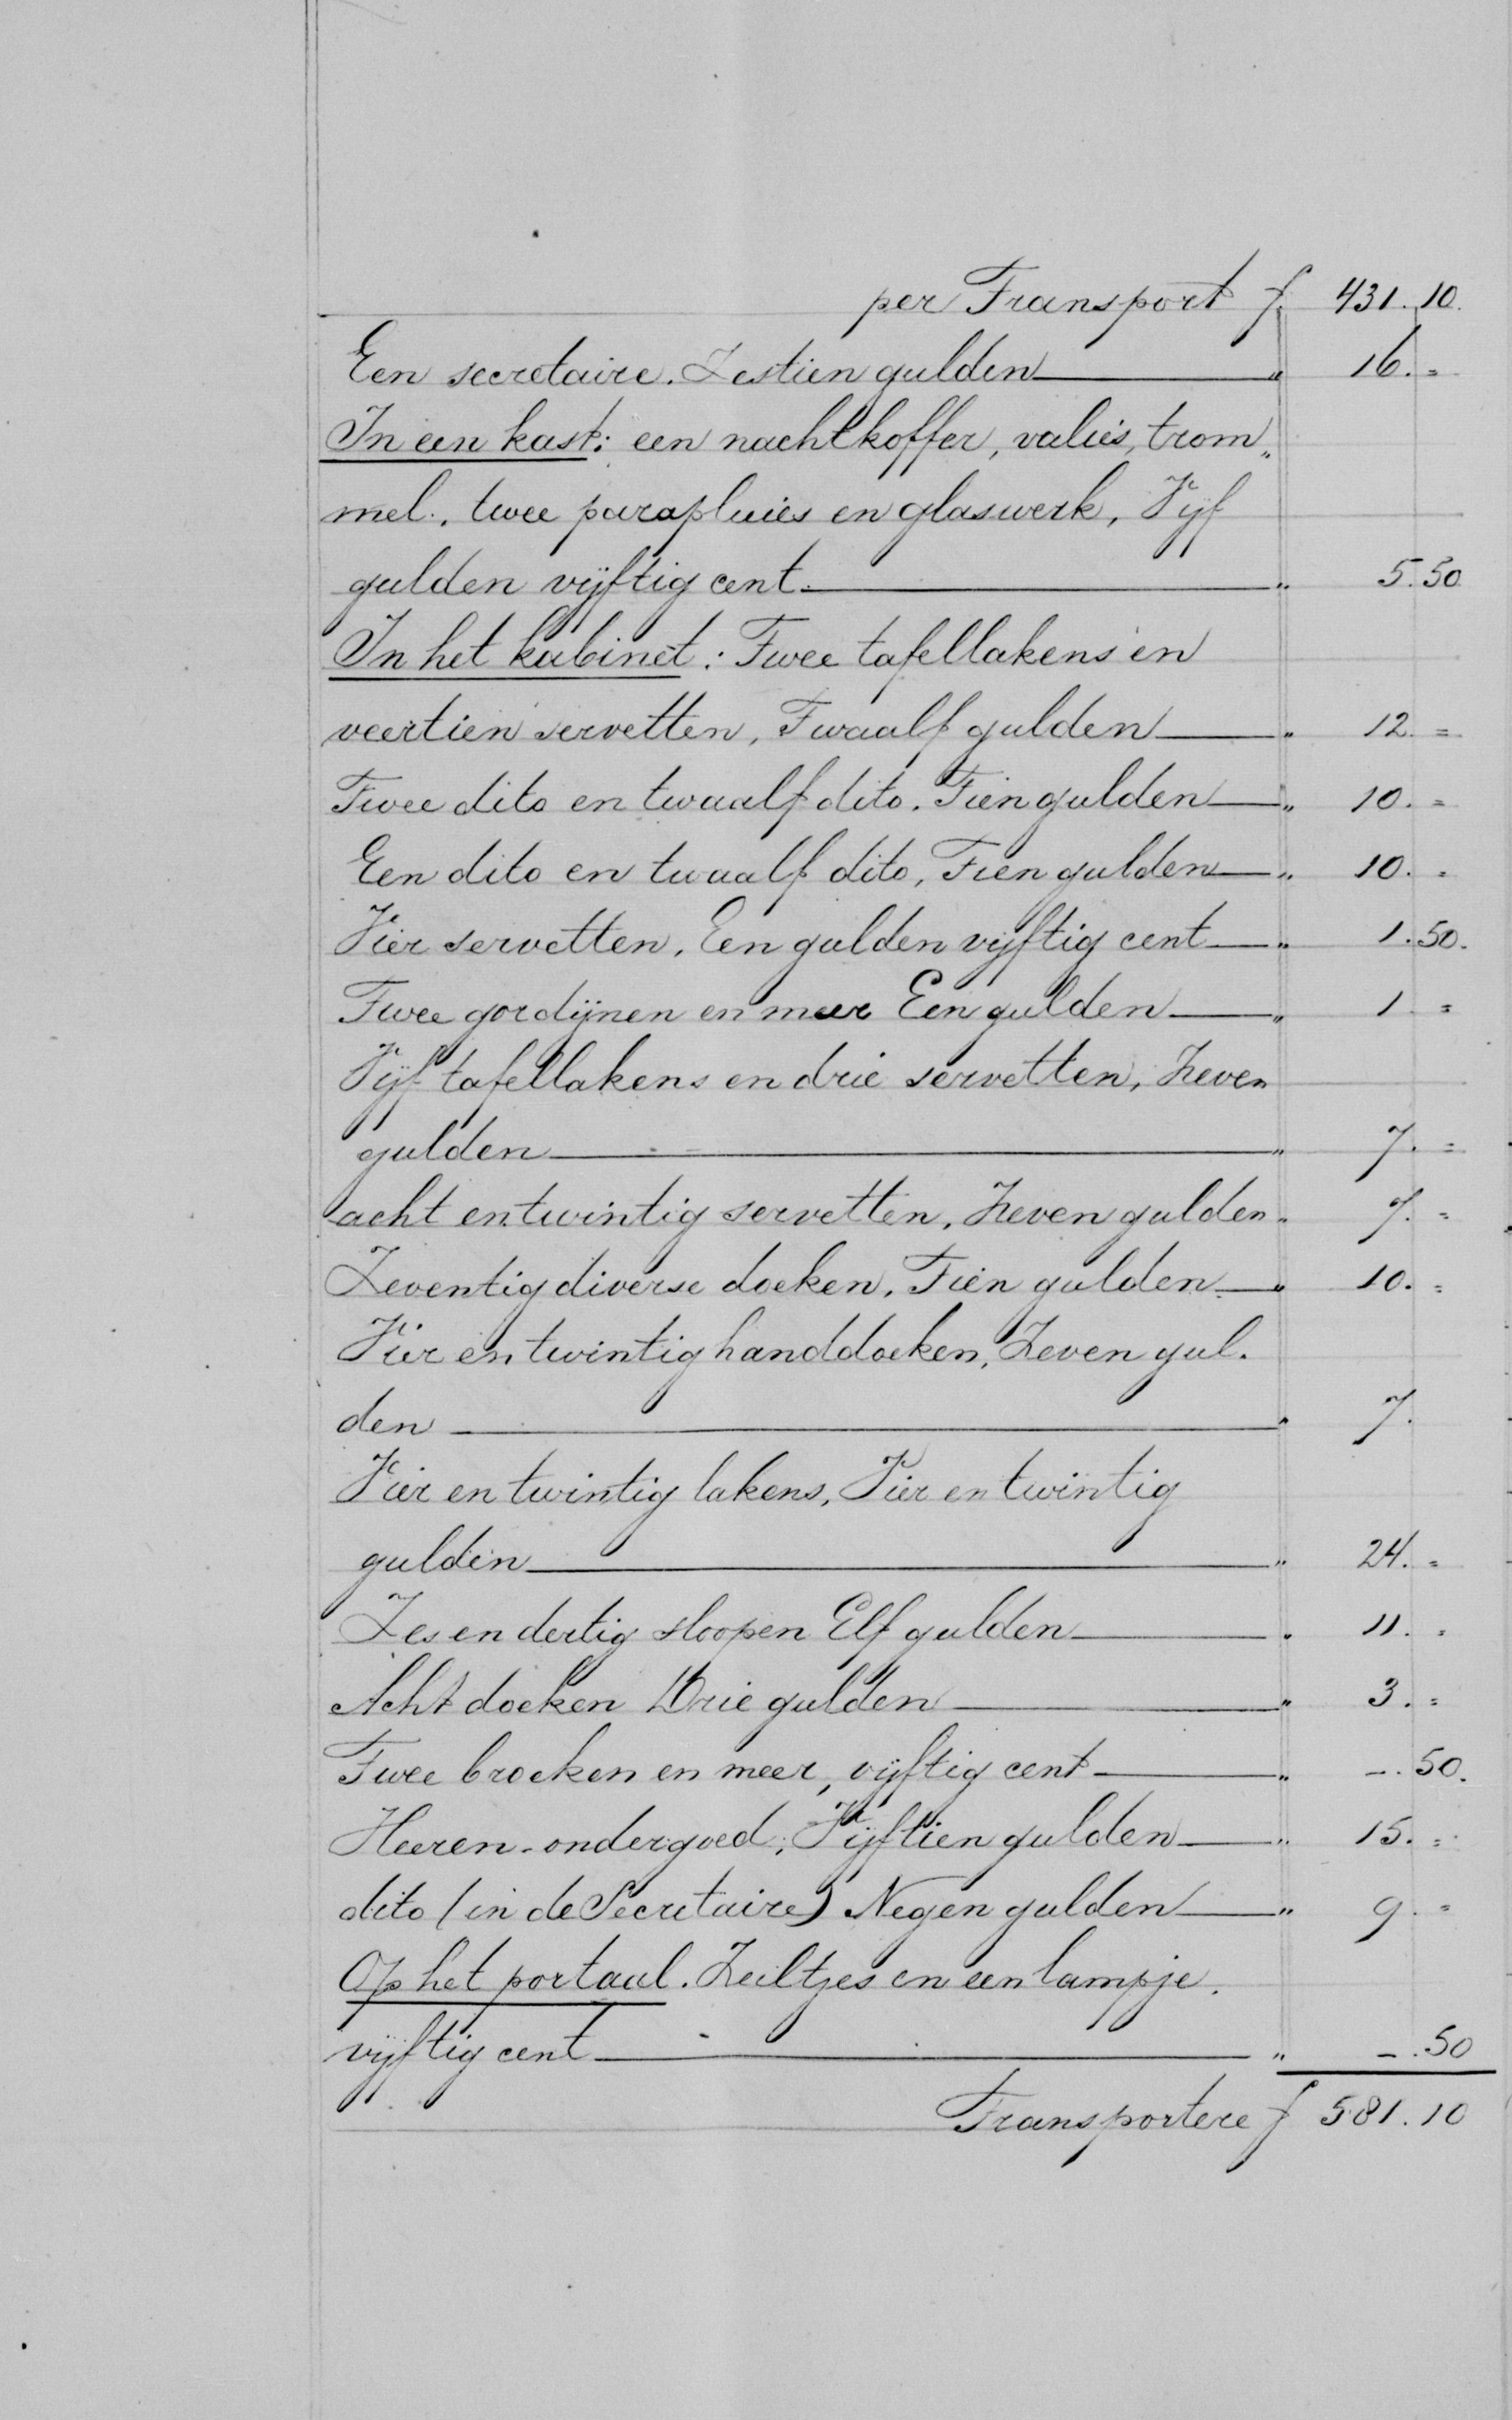 per Transport f. 431.10.
Een secretaire. Zestien gulden — " 16.=
In een kast: een nachtkoffer, valies, trom„
mel., twee parapluies en glaswerk, Vijf
gulden vijftig cent. — " 5.50
In het kabinet: Twee tafellakens en
veertien servetten, Twaalf gulden — " 12.=
Twee dito en twaalf dito. Tien gulden — " 10.=
Een dito en twaalf dito, Tien gulden — " 10.=
Vier servetten, Een gulden vijftig cent — " 1.50.
Twee gordijnen en meer Een gulden — " 1 =
Vijf tafellakens en drie servetten, Zeven
gulden — " 7.=
acht en twintig servetten, Zeven gulden " 7.=
Zeventig diverse doeken, Tien gulden — " 10.=
Vier en twintig handdoeken, Zeven gul.
den — " 7.
Vier en twintig lakens, Vier en twintig
gulden — " 24.=
Zes en dertig sloopen Elf gulden — " 11.=
Acht doeken Drie gulden — " 3.=
Twee broeken en meer, vijftig cent — " -.50.
Heeren-ondergoed, Vijftien gulden — " 15.=
dito (in de Secretaire) Negen gulden — " 9.=
Op het portaal. Zeiltjes en een lampje.
vijftig cent — " -.50
Transportere f 581.10